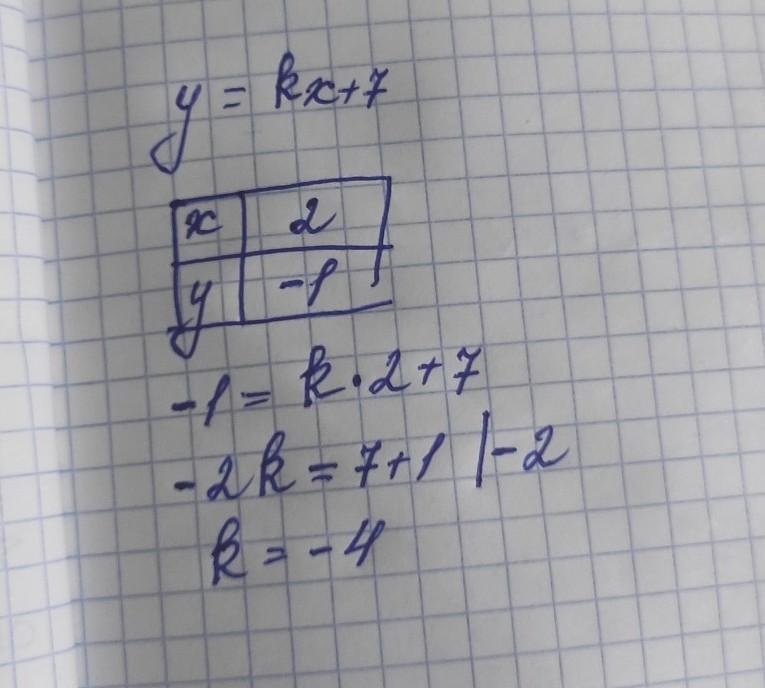 y = kx+7
x 2
y -1
-1 = k·2+7
-2k = 7+1 |-2
k = -4